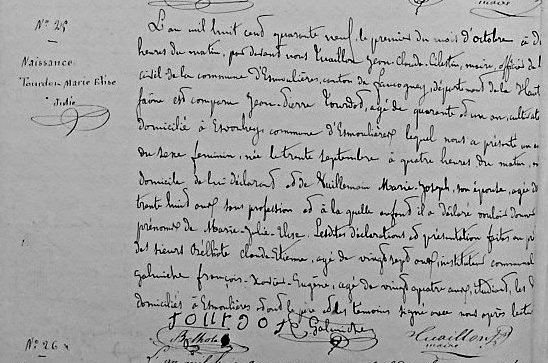 maire
N° 25
Naissance
Tourdot Marie Elise
Julie
L'an mil huit cent quarante neuf, le premier du mois d'octobre à
heures du matin, par devant nous Vuaillon Jean-Claude-Célestin, maire, officier de l'
civil de la commune d'Esmoulières, canton de Faucogney, département de la Haute
Saône est comparu Jean-Pierre Tourdot, agé de quarante et un ans, cultivate
domicilié à commune d'Esmoulières lequel nous a présenté un en
du sexe féminin, née le trente septembre à quatre heures du matin,
domicile de lui déclarant et de Vuillemain Marie-Joseph, son épouse, agée de
trente huit ans sans profession et à la quelle enfant il a déclaré vouloir donner
prénoms de Marie-Julie-Elise. Lesdites déclarations et présentation faites en pré
des sieurs Belhote Claude Etienne, agé de vingt sept ans, instituteur communal
Galmiche françois-Xavier-Eugène, agé de vingt quatre ans, étudiant, les
domiciliés à Esmoulières et ont le père et les témoins signé avec nous après lecture
Tourdot Galmiche
Belhote Vuaillon
maire
N° 26